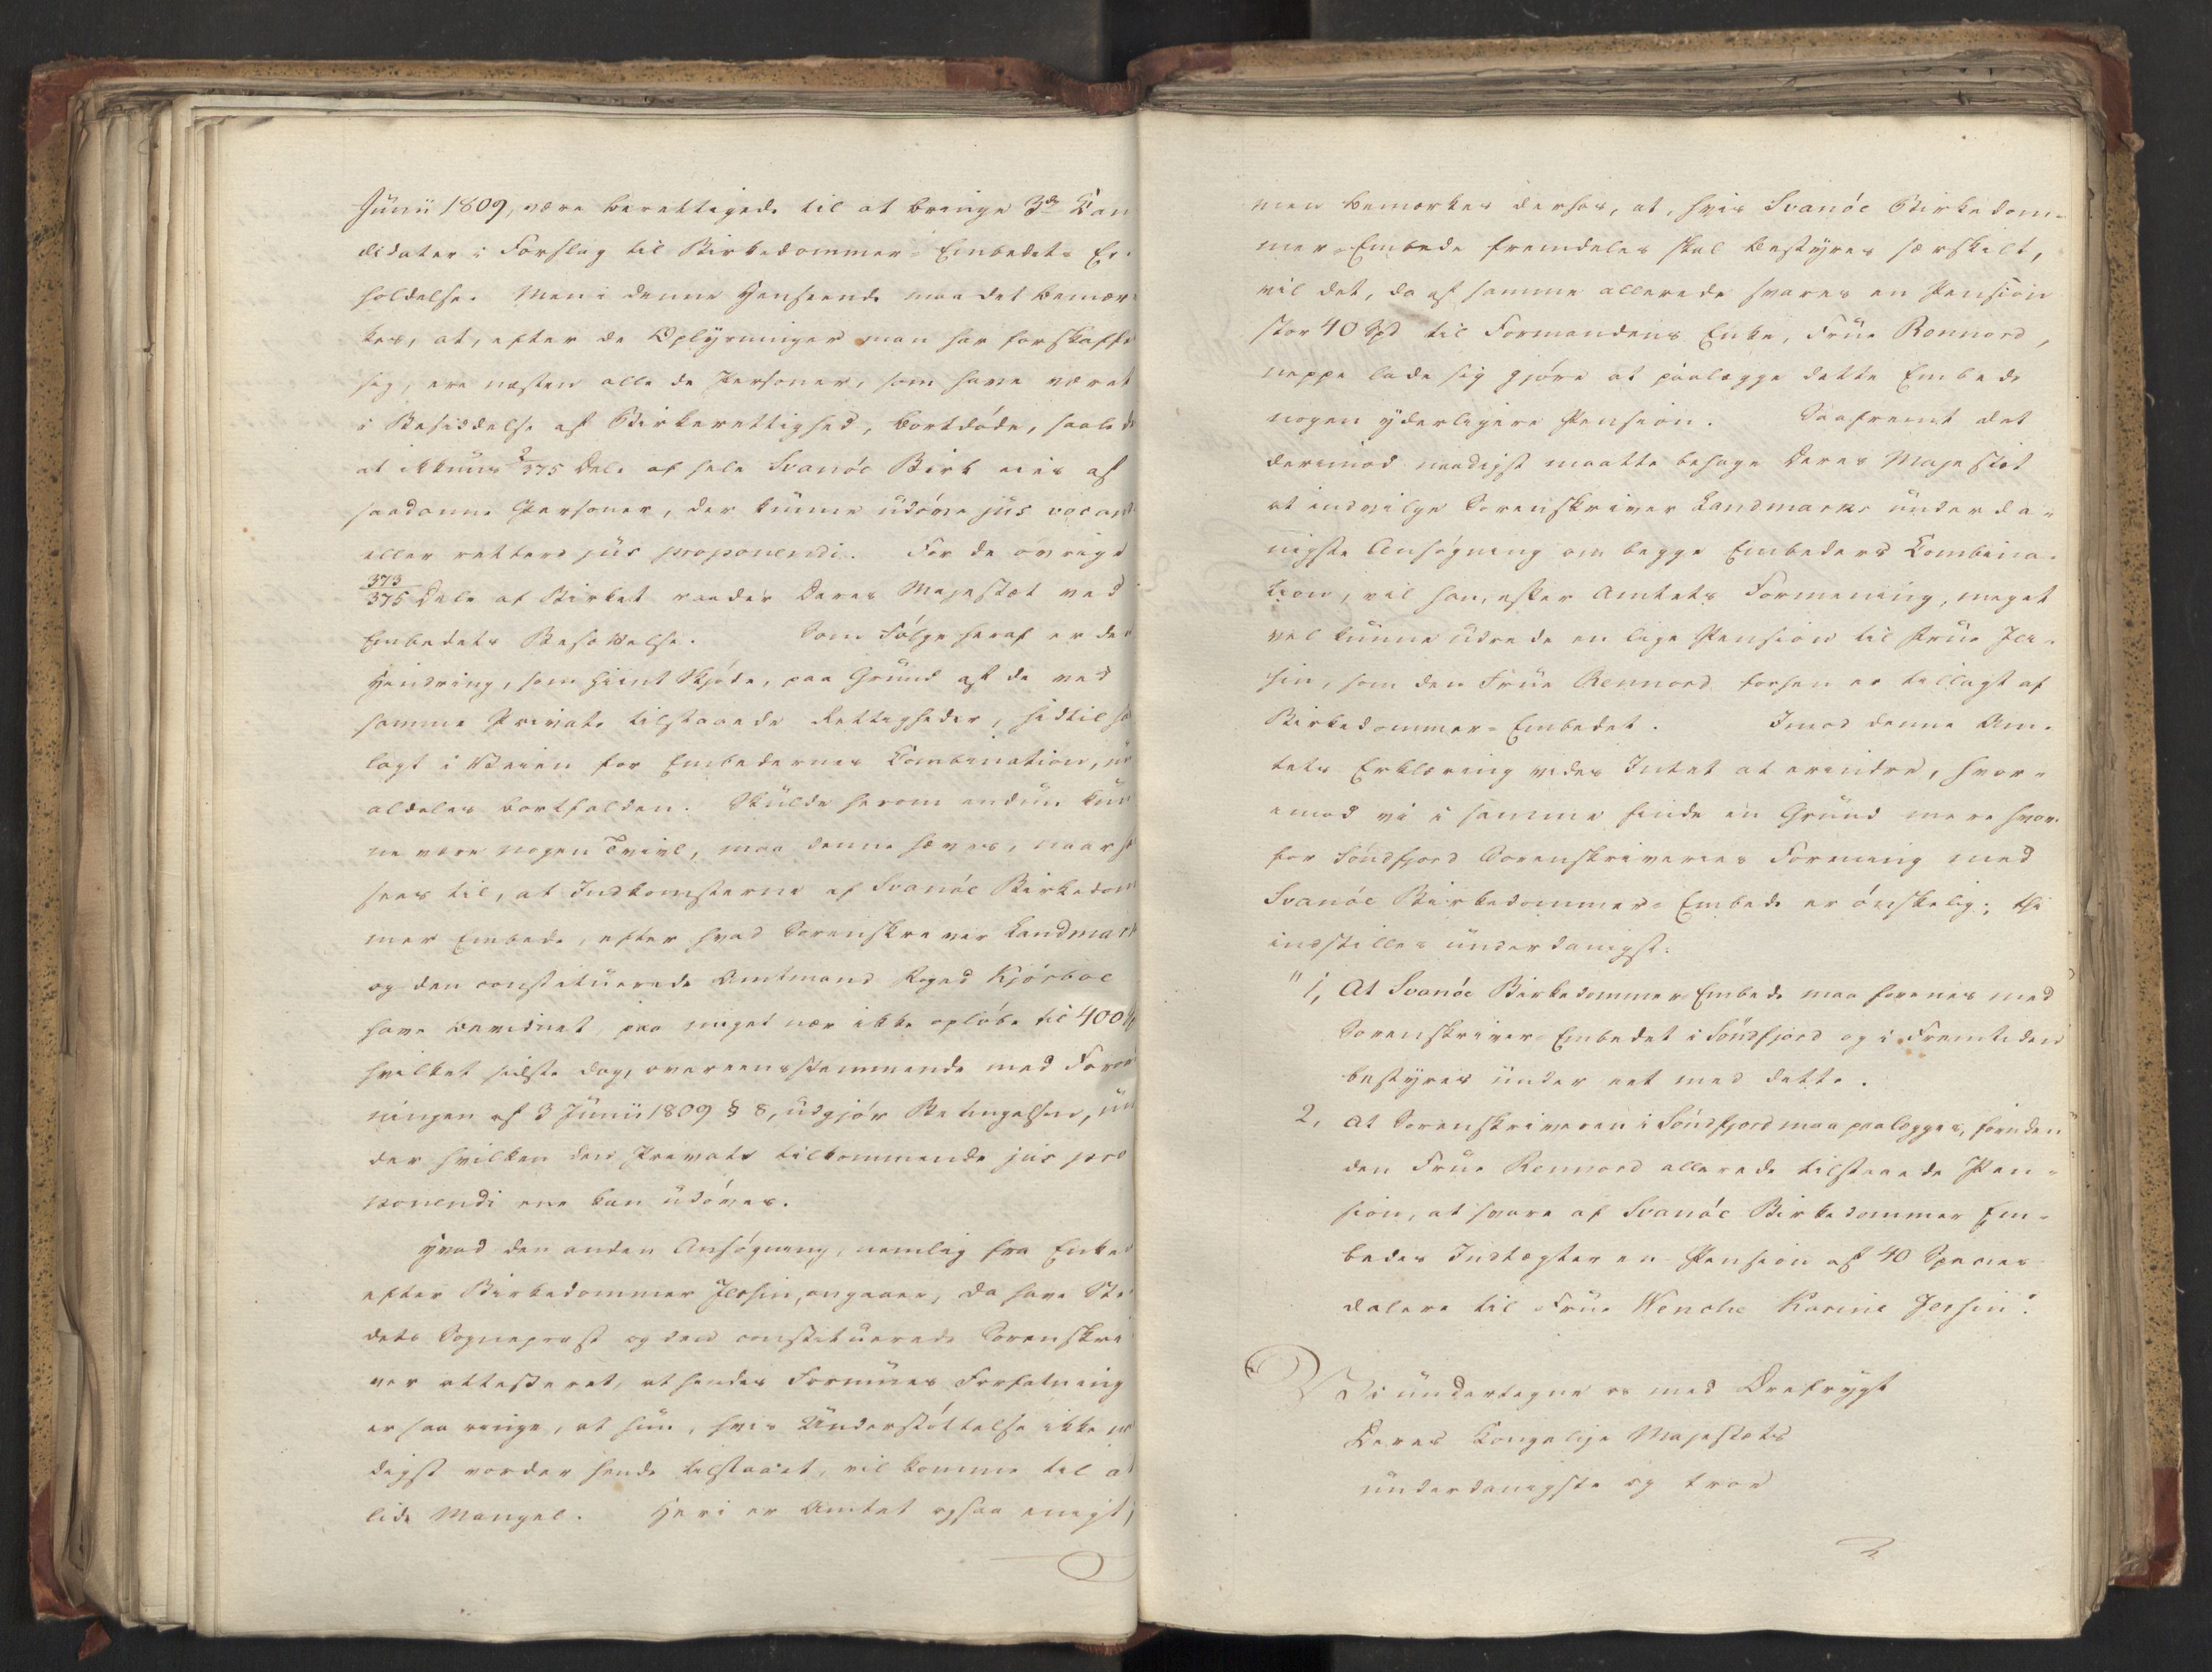 Junii 1809, være berettigede til at bringe 3de Kan
didater i Forslag til Birkedommer-Embedets Er-
holdelse. Men i denne Henseende maa det bemær-
kes, at, efter de Oplysninger man har forskaffet
sig, ere næsten alle de Personer, som have været
i Besiddelse af Birkerettighed, bortdöde, saalede
at ikkuns 2/375 Dele af hele Svanöe Birk eies af
saadanne Personer, der kunne udöve jus vocand
eller rettere jus proponendi. For de övrige
373/375 Dele af Birket raader Deres Majestæt ved
Embedets Besættelse. Som Fölge heraf er den
Hindring, som hiint Skjöde, paa Grund af de ved
samme Private tilstaaede Rettigheder, hidtil ha
lagt i Veien for Embedernes Combination, nu
aldeles bortfalden. Skulde herom endnu kun
ne være nogen Tvivl, maa denne hæves, naar he
sees til, at Indkomsterne af Svanöe Birkedom
mer Embede, efter hvad Sorenskriver Landmark
og den constituerede Amtmand Foged Kjörboe
have bevidnet, paa meget nær ikke oplöbe til 400
hvilket sidste dog, overeensstemmende med Foror
ningen af 3 Junii 1809 § 8, udgjör Betingelsen, un
der hvilken den Private tilkommende jus pro
ponendi ene kan udöves.
Hvad den anden Ansögning, nemlig fra Enken
efter Birkedommer Jersin, angaaer, da have Ste-
dets Sognepræst og den constituerede Sorenskri
ver attesteret, at hendes Formues Forfatning
er saa ringe, at hun, hvis Understöttelse ikke na
digst vorder hende tilstaaet, vil komme til at
lide Mangel. Heri er Amtet ogsaa enigt,
men bemærker derhos, at, hvis Svanöe Birkedom-
mer-Embede fremdeles skal bestyres særskilt,
vil det, da af samme allerede svares en Pension
stor 40 Spd til Formandens Enke, Frue Rennord,
neppe lade sig gjöre at paalægge dette Embede
nogen yderligere Pension. Saafremt det
derimod naadigst maatte behage Deres Majestæt
at indvilge Sorenskriver Landmarks underda-
nigste Ansögning om begge Embeders Combina-
tion, vil han, efter Amtets Formening, meget
vel kunne udrede en lige Pension til Frue Jer-
sin, som den Frue Rennord forhen er tillagt af
Birkedommer-Embedet. Imod denne Am-
tets Erklæring vides Intet at erindre, hvor-
imod vi i samme finde en Grund mere hvor-
for Söndfjord Sorenskriveries Forening med
Svanöe Birkedommer-Embede er önskelig; thi
indstilles underdanigst:
"1, At Svanöe Birkedommer Embede maa forenes med
Sorenskriver-Embedet i Söndfjord og i Fremtiden
bestyres under eet med dette.
2, At Sorenskriveren i Söndfjord maa paalægges, foruden
den Frue Rennord allerede tilstaaede Pen-
sion, at svare af Svanöe Birkedommer Em-
bedes Indtægter en Pension af 40 Species
dalere til Frue Wenche Karine Jersin".
Vi undertegne os med Ærefrygt
Deres Kongelige Majestæts
underdanigste og troe